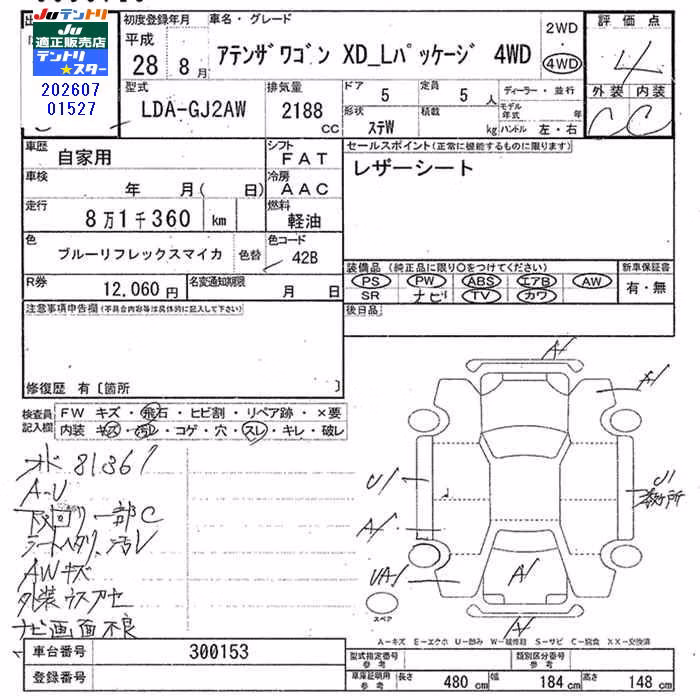 Juテントリ
Ju
適正販売店
テントリ
★スター
202607
01527
初度登録年月
平成
28 8 月
車名・グレード
アテンザワゴン XD_Lパッケージ 4WD
2WD
4WD
評価点
4
外装 内装
C C
型式
LDA-GJ2AW
排気量
2188
cc
ドア 5
定員 5 人
形状 ステW
積載 kg
ディーラー・並行
モデル年式 年
ハンドル 左・右
車歴
自家用
シフト
FAT
セールスポイント(正常に機能するものに限ります)
レザーシート
車検
年 月( 日)
冷房
AAC
走行
8万1千360 km
燃料
軽油
色
ブルーリフレックスマイカ
色替
色コード
42B
装備品(純正品に限り○をつけてください)
PS PW ABS エアB AW
SR ナビ TV カワ
新車保証書
有・無
R券
12,060 円
名変通知期限
月 日
後日品
注意事項申告欄(不具合内容等は具体的に記入して下さい)
修復歴 有〔箇所 〕
検査員記入欄
FW キズ・飛石・ヒビ割・リペア跡・×要
内装 キズ・汚レ・コゲ・穴・スレ・キレ・破レ
81361
A-U
下回り一部C
シートヘタリ、汚レ
AWキズ
外装ウスアセ
ナビ画面不良
A/
A/
U/
U/
A/
UA/
A/
A/
スペア
A-キズ E-エクボ U-凹み W-補修跡 S-サビ C-腐食 XX-交換済
車台番号
300153
登録番号
型式指定番号
参考
類別区分番号
参考
車庫証明用
参考
長さ 480 cm
幅 184 cm
高さ 148 cm